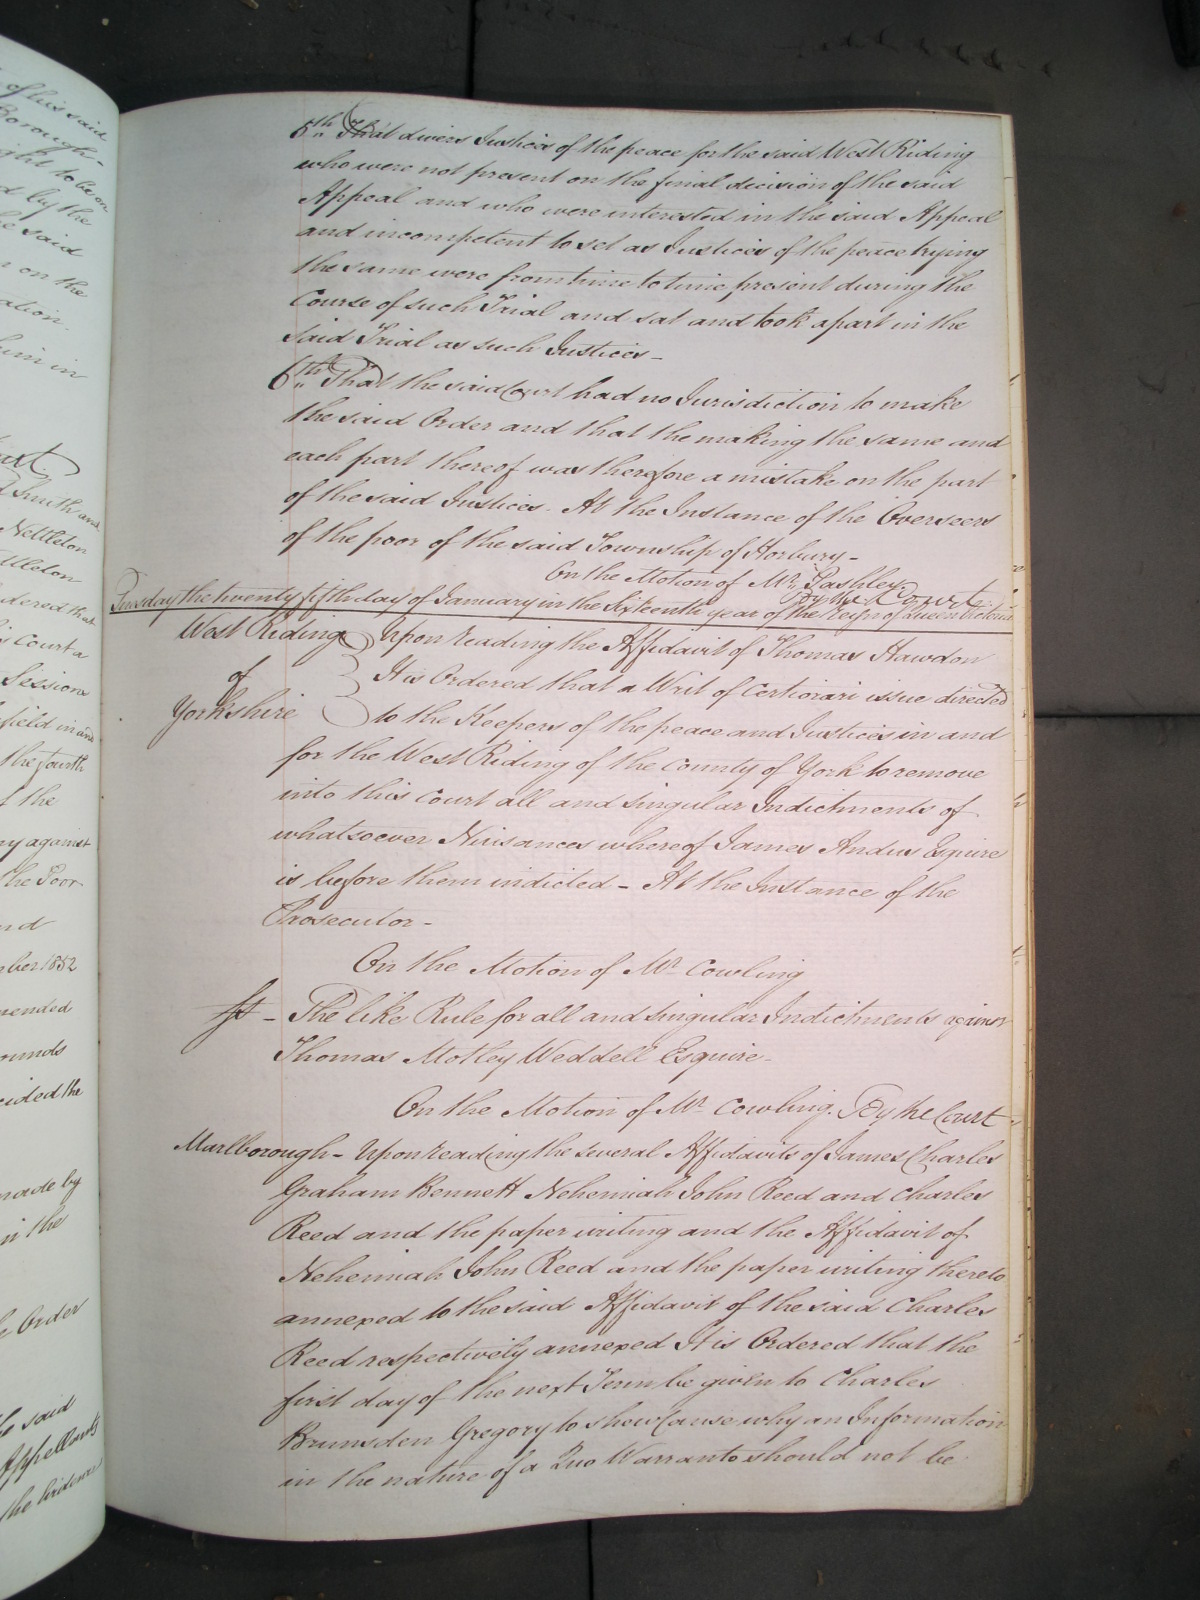 of his said
Borough-
ght to be on
d by the
he said
n on the
ation
him in
art.
d Smith and
Nettleton
ttleton
dered that
s Court a
Session
field in and
the fourth
f the
ny against
the Poor
nd
mber 1852
mended
ounds
cided the
made by
in the
e Order
he said
Appellants
the
5th That divers Justices of the peace for the said West Riding
who were not present on the final decision of the said
Appeal and who were interested in the said Appeal
and incompetent to set as Justices of the peace trying
the same were from time to time present during the
Course of such Trial and sat and took a part in the
said Trial as such Justices-
6th That the said Court had no Jurisdiction to make
the said Order and that the making the same and
each part thereof was therefore a mistake on the part
of the said Justices. At the Instance of the Overseers
of the poor of the said Township of Horbury-
On the Motion of Mr. Pashley
By the Court
Tuesday the twenty fifth day of January in the Sixteenth year of the Reign of Queen Victoria
West Riding Upon reading the Affidavit of Thomas Hawdon
of It is Ordered that a Writ of Certiorari issue directed
Yorkshire to the Keepers of the peace and Justices in and
for the West Riding of the County of York to remove
into this Court all and singular Indictments of
whatsoever Nuisances whereof James Andus Esquire
is before them indicted - At the Instance of the
Prosecutor -
On the Motion of Mr Cowling
St - The like Rule for all and singular Indictments against
Thomas Motley Weddell Esquire-
On the Motion of Mr Cowling. By the Court
Marlborough - Upon reading the several Affidavits of James Charles
Graham Bennett Nehemiah John Reed and Charles
Reed and the paper writing and the Affidavit of
Nehemiah John Reed and the paper writing thereto
annexed to the said Affidavit of the said Charles
Reed respectively annexed It is Ordered that the
first day of the next Term be given to Charles
Brunsden Gregory to show Cause why an Information
in the nature of a Quo Warranto should not be